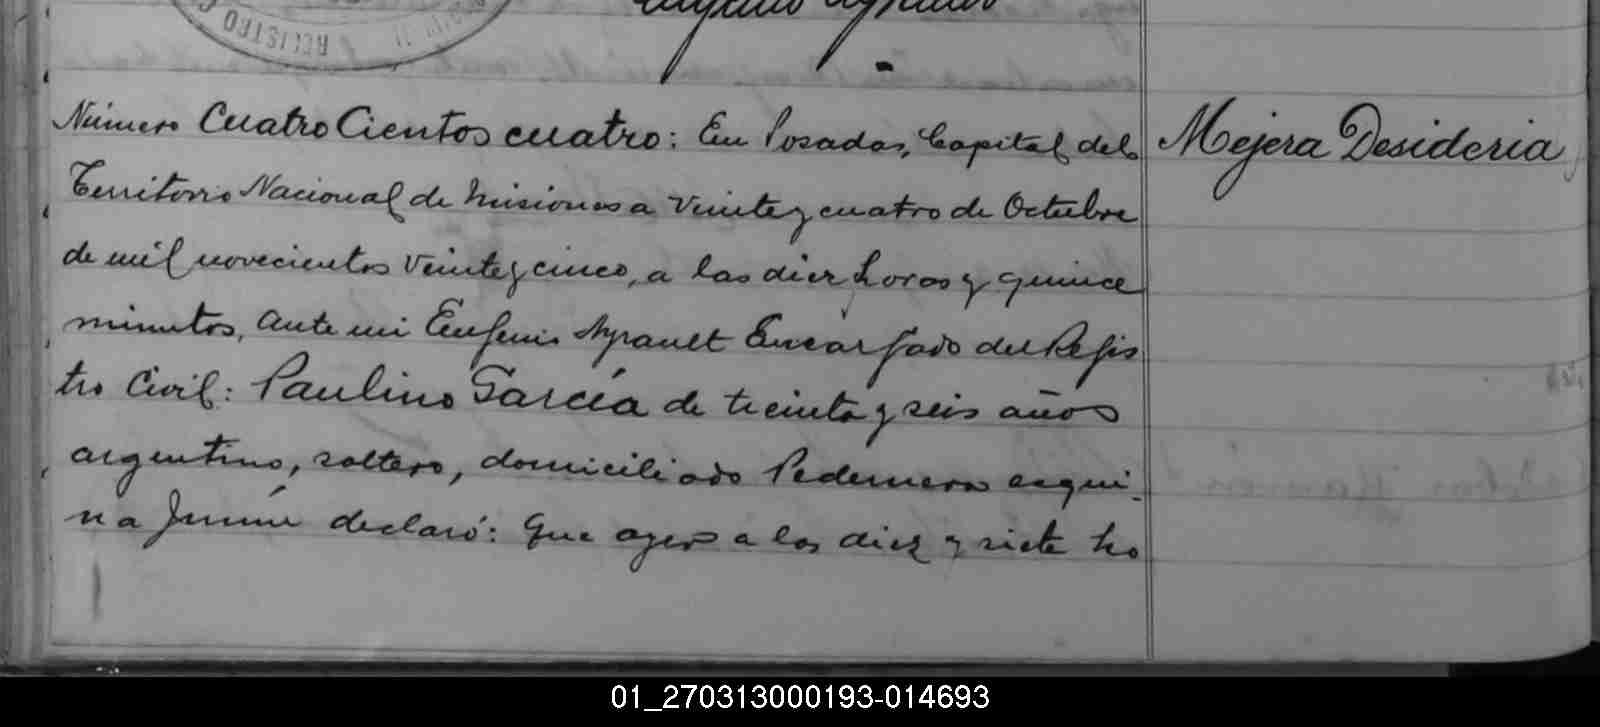 REGISTRO
Número Cuatro Cientos cuatro: En Posadas, Capital del
Territorio Nacional de Misiones a Veinte y cuatro de Octubre
de mil novecientos Veinte y cinco, a las diez horas y quince
minutos, ante mi Eugenio Ayrault Encargado del Regis
tro Civil: Paulino García de treinta y seis años
argentino, soltero, domiciliado Pedernera esqui-
na Junín declaró: Que ayer a las diez y siete ho
Mejera Desideria
01_270313000193-014693